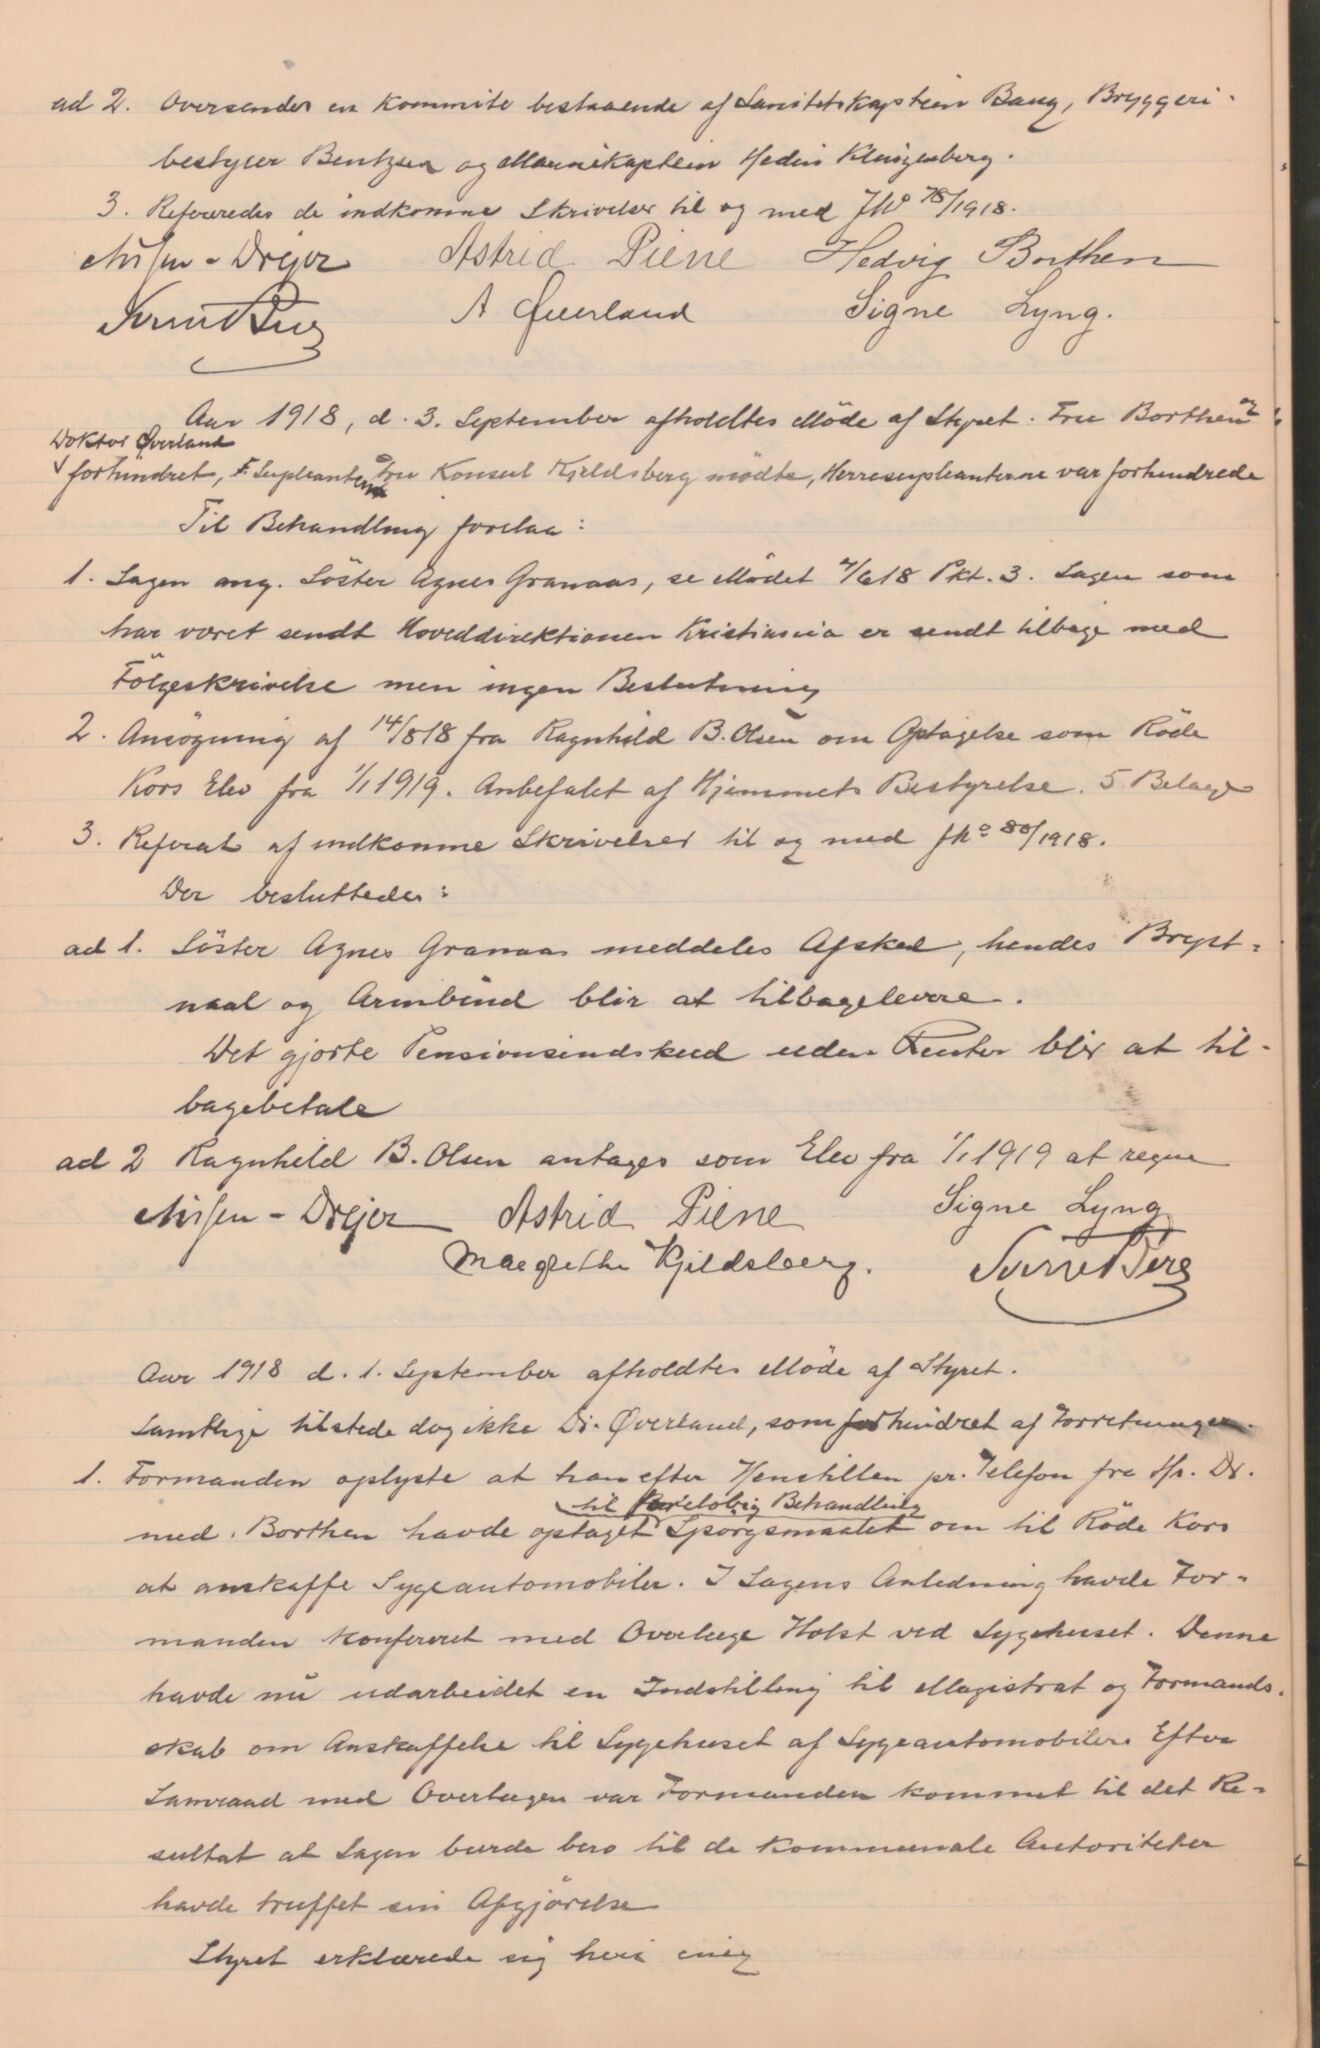 ad 2. Oversendes en Kommite bestaaende af Sanitetskaptein Bang, Bryggeri-
bestyrer Bentzen og Marinekaptein Hedin Klingenberg.
3. Refereredes de indkomne Skrivelser til og med JNo 78/1918.
Nissen-Drejer Astrid Piene Hedvig Borthen
Sverre Berg A Øverland Signe Lyng.
Aar 1918, d. 3. September afholdtes Möde af Styret. Fru Borthen og
Doktor Øverland
forhindret, F. Supleanten Fru Konsul Kjeldsberg mödte, Herresupleanterne var forhindrede
Til Behandling forelaa:
1. Sagen ang. Söster Agnes Granaas, se Mödet 4/618 Pkt. 3. Sagen som
har været sendt Hoveddirektionen Kristiania er sendt tilbage med
Fölgeskrivelse men ingen Beslutning
2. Ansögning af 14/818 fra Ragnhild B. Olsen om Optagelse som Röde
Kors Elev fra 1/1 1919. Anbefalet af Hjemmets Bestyrelse. 5 Belage
3. Referat af indkomne Skrivelser til og med JNo 80/1918.
Der besluttedes:
ad 1. Söster Agnes Granaas meddeles Afsked, hendes Bryst-
naal og Armbind blir at tilbagelevere.
Det gjorte Pensionsindskud uden Renter blir at til-
bagebetale
ad 2 Ragnhild B. Olsen antages som Elev fra 1/1 1919 at regne
Nissen-Drejer Astrid Piene Signe Lyng
Margrethe Kjeldsberg. Sverre Berg
Aar 1918 d. 1. September afholdtes Möde af Styret.
Samtlige tilstede dog ikke Dr. Øverland, som forhindret af Forretninger.
1. Formanden oplyste at han efter Henstillen pr. Telefon fra Hr. Dr.
til foreløbig Behandling
med. Borthen havde optaget Spörgsmaalet om til Röde Kors
at anskaffe Sygeautomobiler. I Sagens Anledning havde For-
manden konfereret med Overlæge Holst ved Sygehuset. Denne
havde nu udarbeidet en Indstilling til Magistrat og Formands-
skab om Anskaffelse til Sygehuset af Sygeautomobiler. Efter
Samraad med Overlægen var Formanden kommet til det Re-
sultat at Sagen burde bero til de kommunale Autoriteter
havde truffet sin Afgjörelse
Styret erklærede sig heri enig